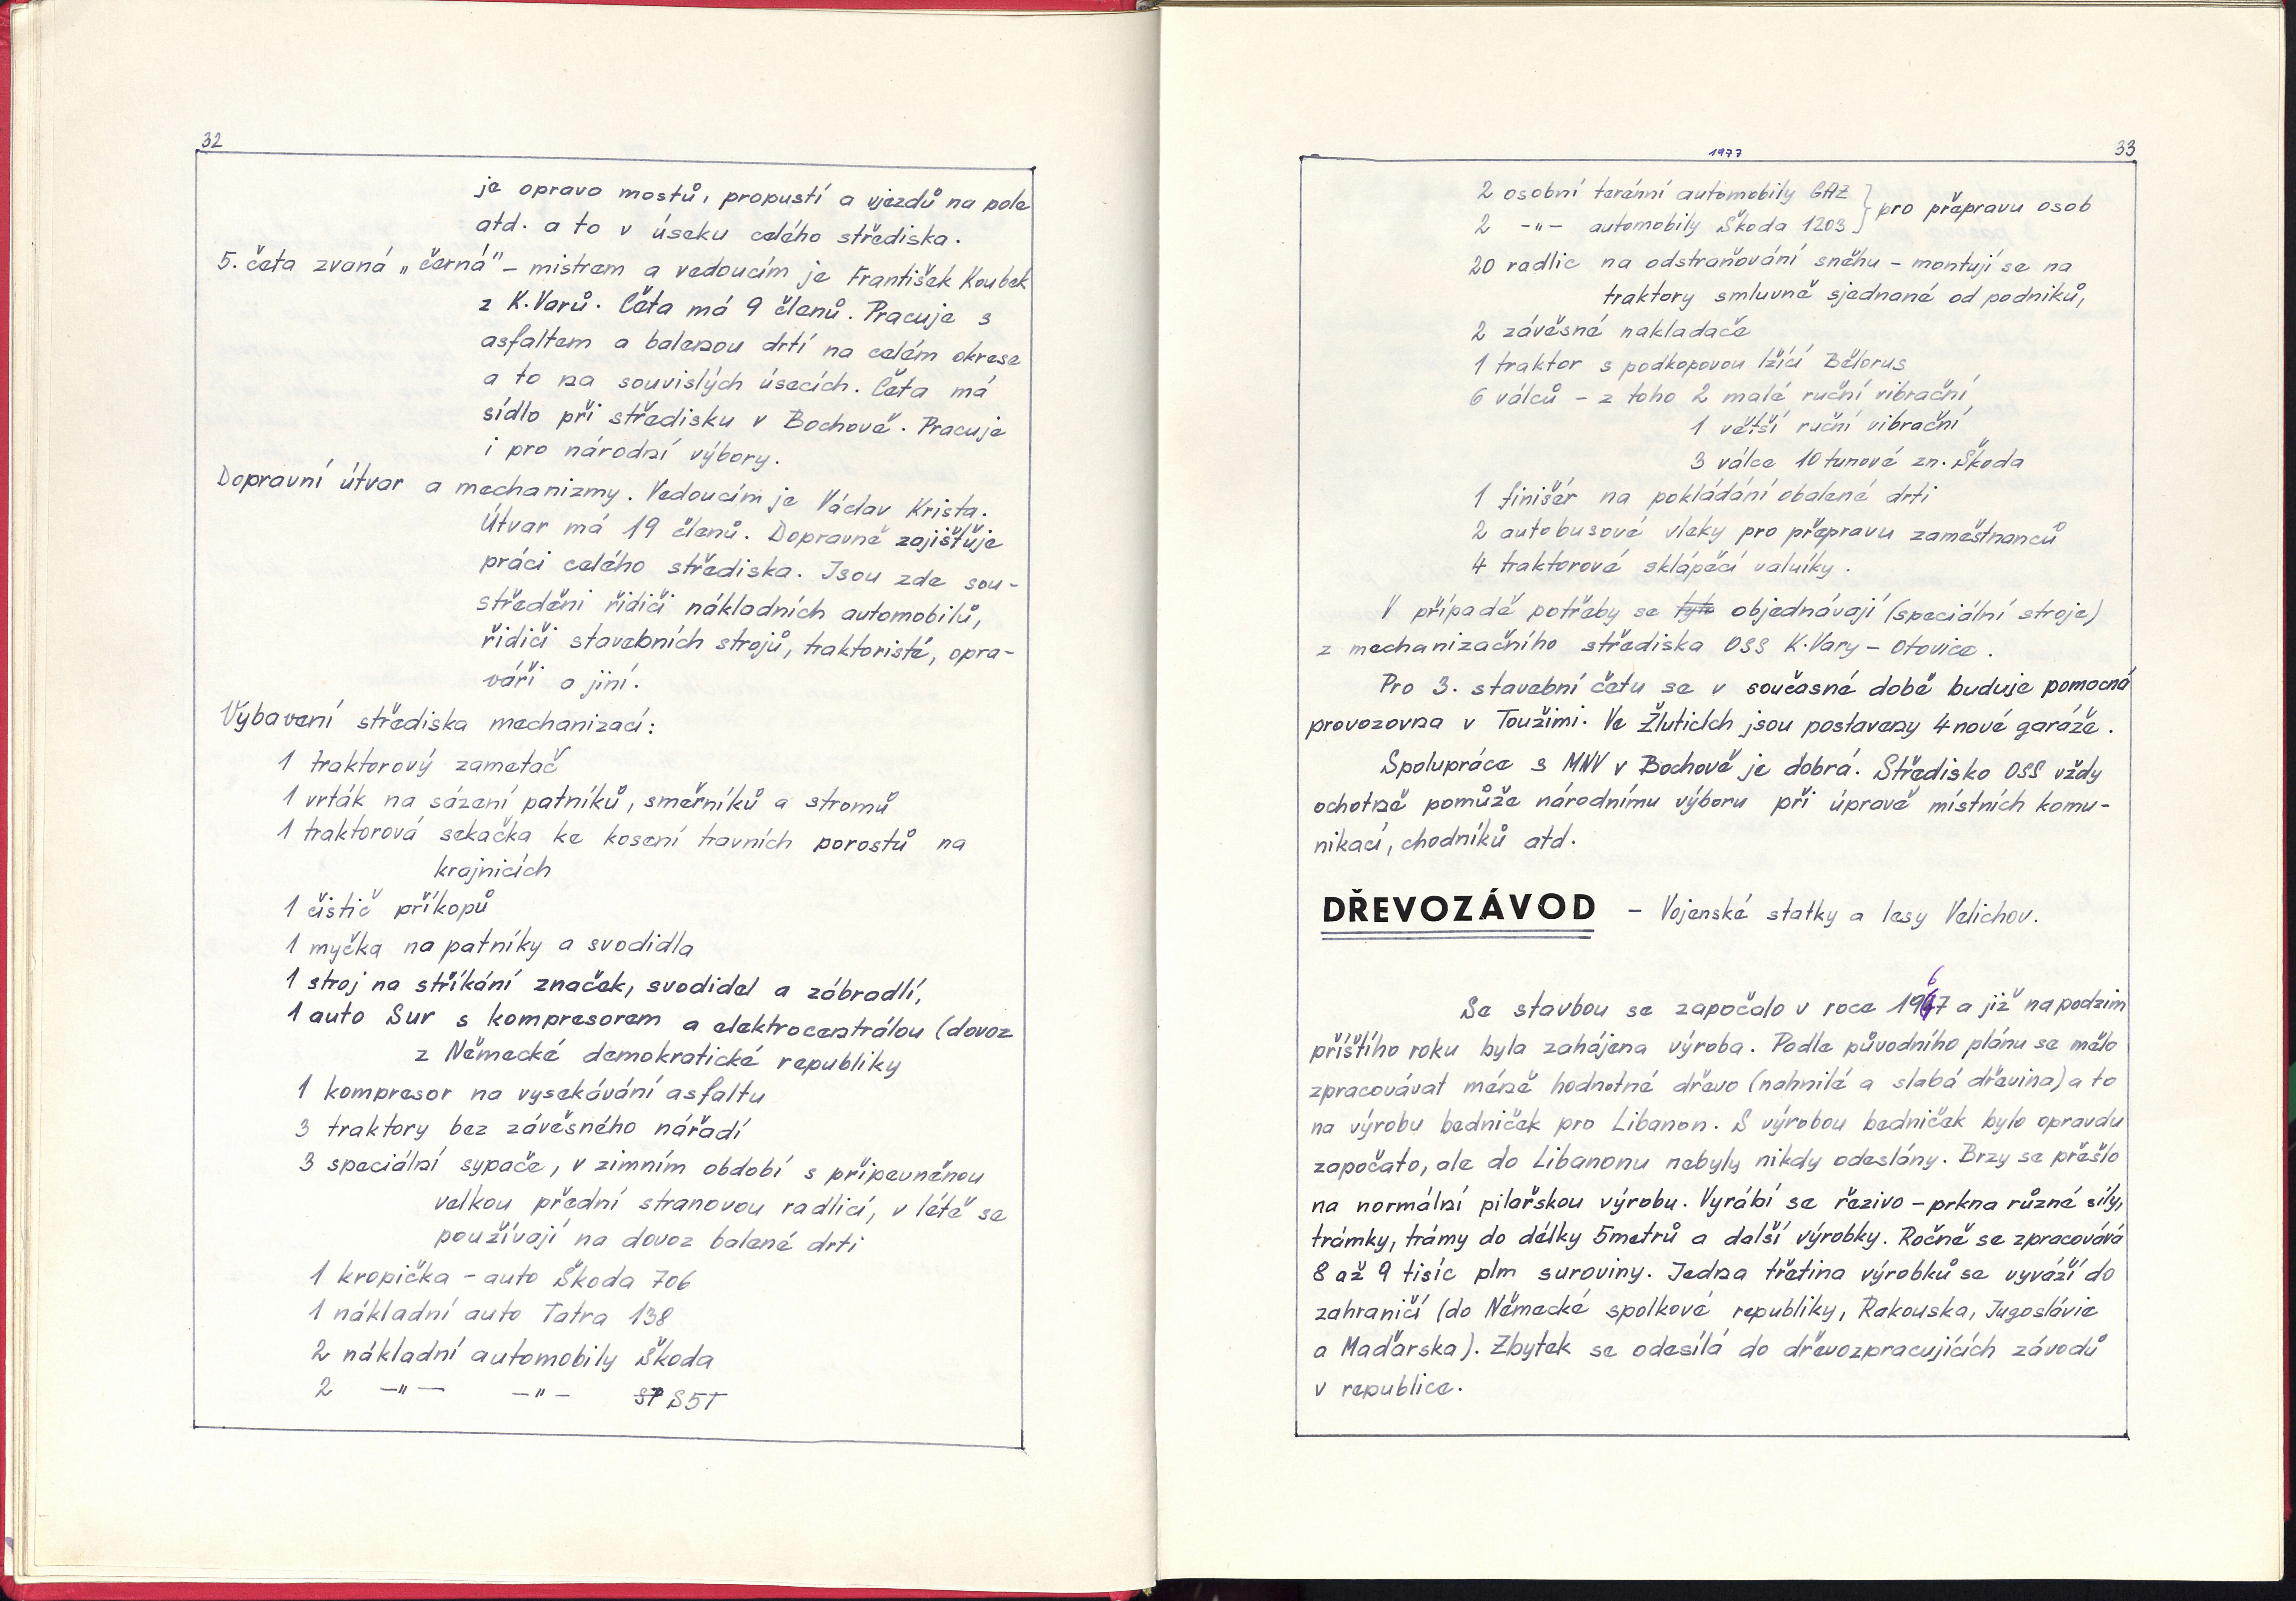 32
je oprava mostů, propustí a vjezdů na pole
atd. a to v úseku celého střediska.
5. četa zvaná „černá" – mistrem a vedoucím je František Koubek
z K.Varů. Četa má 9 členů. Pracuje s
asfaltem a balenou drtí na celém okrese
a to na souvislých úsecích. Četa má
sídlo při středisku v Bochově. Pracuje
i pro národní výbory.
Dopravní útvar a mechanizmy. Vedoucím je Václav Krista.
Útvar má 19 členů. Dopravně zajišťuje
práci celého střediska. Jsou zde sou-
středěni řidiči nákladních automobilů,
řidiči stavebních strojů, traktoristé, opra-
váři a jiní.
Vybavení střediska mechanizací:
1 traktorový zametač
1 vrták na sázení patníků, směrníků a stromů
1 traktorová sekačka ke kosení travních porostů na
krajnicích
1 čistič příkopů
1 myčka na patníky a svodidla
1 stroj na stříkání značek, svodidel a zábradlí,
1 auto Sur s kompresorem a elektrocentrálou (dovoz
z Německé demokratické republiky
1 kompresor na vysekávání asfaltu
3 traktory bez závěsného nářadí
3 speciální sypače, v zimním období s připevněnou
velkou přední stranovou radlicí, v létě se
používají na dovoz balené drti
1 kropička – auto Škoda 706
1 nákladní auto Tatra 138
2 nákladní automobily Škoda
2 –"– –"– S5T
1977
33
2 osobní terénní automobily GAZ } pro přepravu osob
2 –"– automobily Škoda 1203
20 radlic na odstraňování sněhu – montují se na
traktory smluvně sjednané od podniků,
2 závěsné nakladače
1 traktor s podkopovou lžící Bělorus
6 válců – z toho 2 malé ruční vibrační
1 větší ruční vibrační
3 válce 10 tunové zn. Škoda
1 finišér na pokládání obalené drti
2 autobusové vleky pro přepravu zaměstnanců
4 traktorové sklápěcí valníky.
V případě potřeby se tyto objednávají (speciální stroje)
z mechanizačního střediska OSS K.Vary – Otovice.
Pro 3. stavební četu se v současné době buduje pomocná
provozovna v Toužimi. Ve Žluticích jsou postaveny 4 nové garáže.
Spolupráce s MNV v Bochově je dobrá. Středisko OSS vždy
ochotně pomůže národnímu výboru při úpravě místních komu-
nikací, chodníků atd.
DŘEVOZÁVOD – Vojenské statky a lesy Velichov.
Se stavbou se započalo v roce 1967 a již na podzim
příštího roku byla zahájena výroba. Podle původního plánu se mělo
zpracovávat méně hodnotné dřevo (nahnilé a slabá dřevina) a to
na výrobu bedniček pro Libanon. S výrobou bedniček bylo opravdu
započato, ale do Libanonu nebyly nikdy odeslány. Brzy se přešlo
na normální pilařskou výrobu. Vyrábí se řezivo – prkna různé síly,
trámky, trámy do délky 5 metrů a další výrobky. Ročně se zpracovává
8 až 9 tisíc plm suroviny. Jedna třetina výrobků se vyváží do
zahraničí (do Německé spolkové republiky, Rakouska, Jugoslávie
a Maďarska). Zbytek se odesílá do dřevozpracujících závodů
v republice.